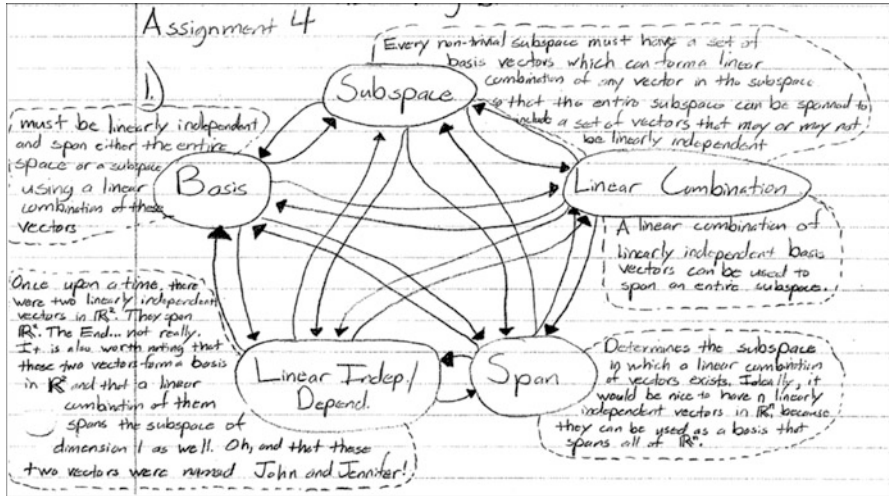 Assignment 4
1.)
Every non-trivial subspace must have a set of
basis vectors which can form a linear
combination of any vector in the subspace
so that the entire subspace can be spanned to
include a set of vectors that may or may not
be linearly independent
Subspace
must be linearly independent
and span either the entire
space or a subspace
using a linear
combination of these
vectors
Basis
Linear Combination
A linear combination of
linearly independent basis
vectors can be used to
span an entire subspace.
Once upon a time, there
were two linearly independent
vectors in ℝ². They span
The End... not really.
It is also worth noting that
these two vectors form a basis
in ℝ² and that a linear
combination of them
spans the subspace of
dimension 1 as well. Oh, and that these
two vectors were named John and Jennifer!
Linear Indep./
Depend.
Span
Determines the subspace
in which a linear combination
of vectors exists. Ideally, it
would be nice to have n linearly
independent vectors in ℝⁿ, because
they can be used as a basis that
spans all of ℝⁿ.